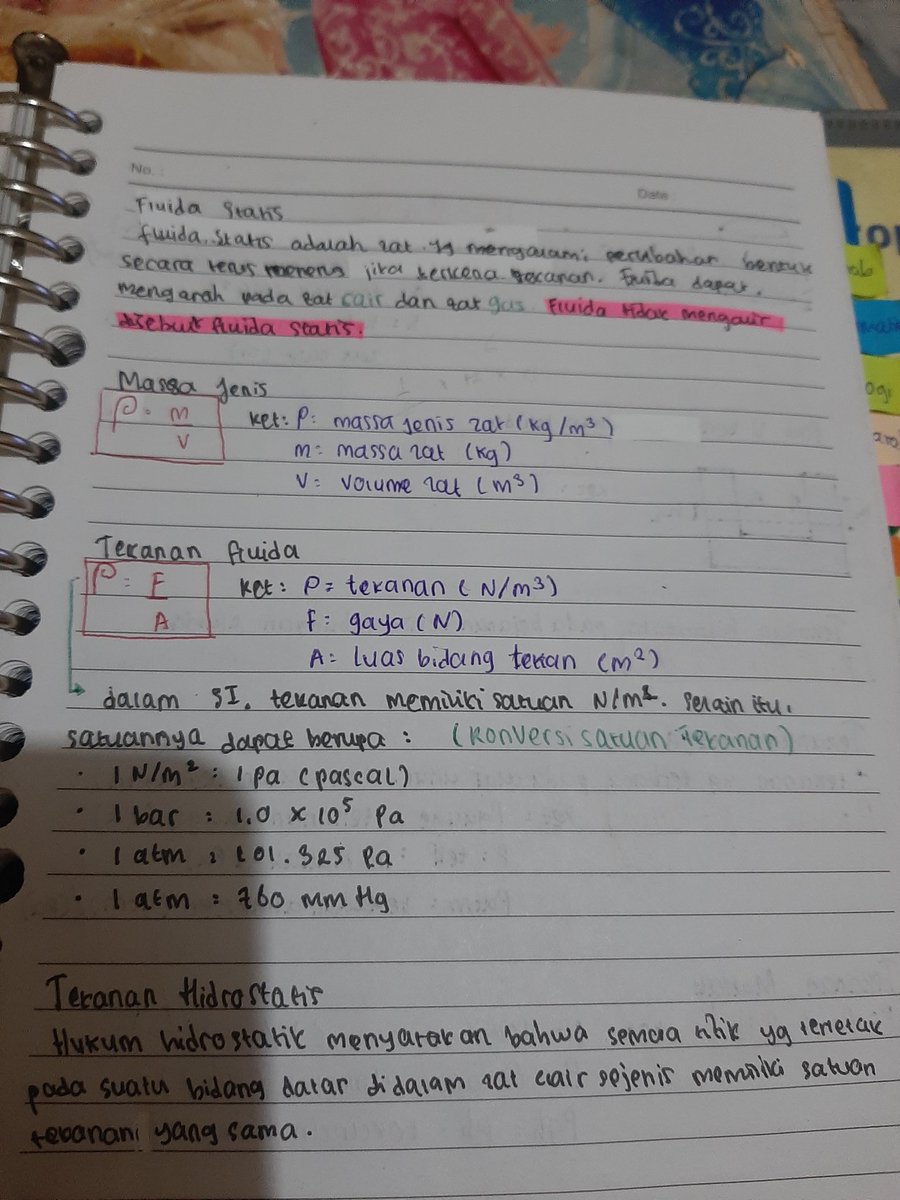 No. :
Date :
Fluida Statis
fluida statis adalah zat yg mengalami perubahan bentuk
secara terus menerus jika terkena tekanan. Fluida dapat
mengarah pada zat cair dan zat gas. Fluida tidak mengalir
disebut fluida statis.
Massa Jenis
ρ = m
V
ket: ρ: massa jenis zat (kg/m³)
m: massa zat (kg)
V: Volume zat (m³)
Tekanan fluida
P = F
A
ket: P= tekanan (N/m³)
F: gaya (N)
A= luas bidang tekan (m²)
dalam SI, tekanan memiliki satuan N/m². selain itu,
satuannya dapat berupa : (konversi satuan tekanan)
· 1 N/m² : 1 Pa (pascal)
· 1 bar : 1.0 × 10⁵ Pa
· 1 atm : 101.325 Pa
· 1 atm : 760 mm Hg
Tekanan Hidrostatis
Hukum hidrostatik menyatakan bahwa semua titik yg terletak
pada suatu bidang datar didalam zat cair sejenis memiliki satuan
tekanani yang sama.